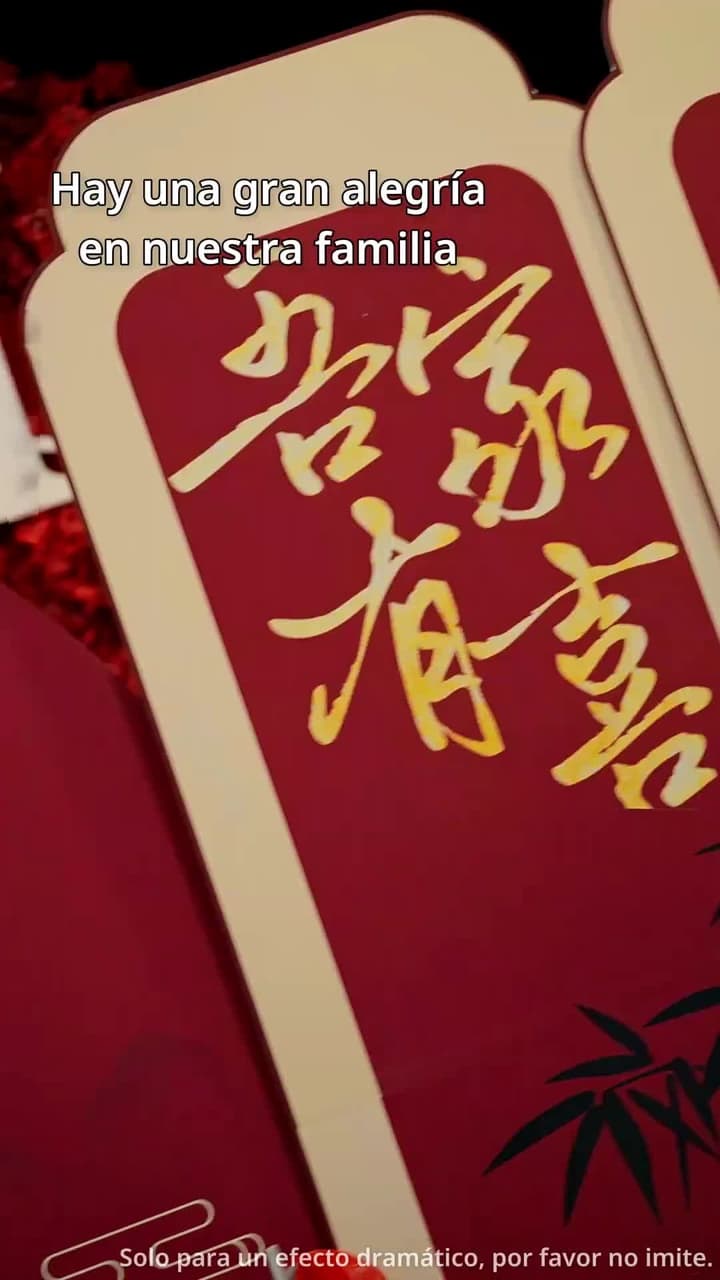 Hay una gran alegría
en nuestra familia
吾家
有喜
Solo para un efecto dramático, por favor no imite.